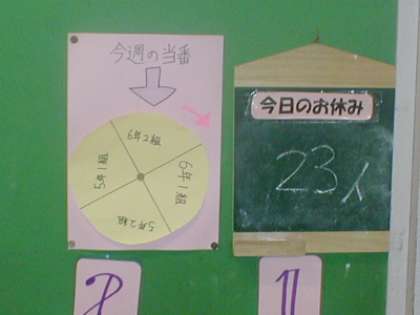 今週の当番
6年2組
6年1組
5年1組
5年2組
今日のお休み
23人